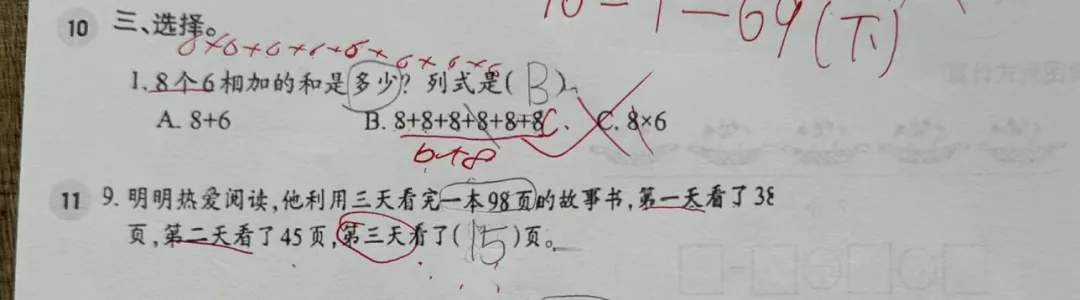 10-1-69(下)
10 三、选择。
6+6+6+6+6+6+6+6
1. 8个6相加的和是多少?列式是( B )。
A. 8+6 B. 8+8+8+8+8+8 C. C. 8×6
6×8
11 9. 明明热爱阅读,他利用三天看完一本98页的故事书,第一天看了38
页,第二天看了45页,第三天看了(15)页。